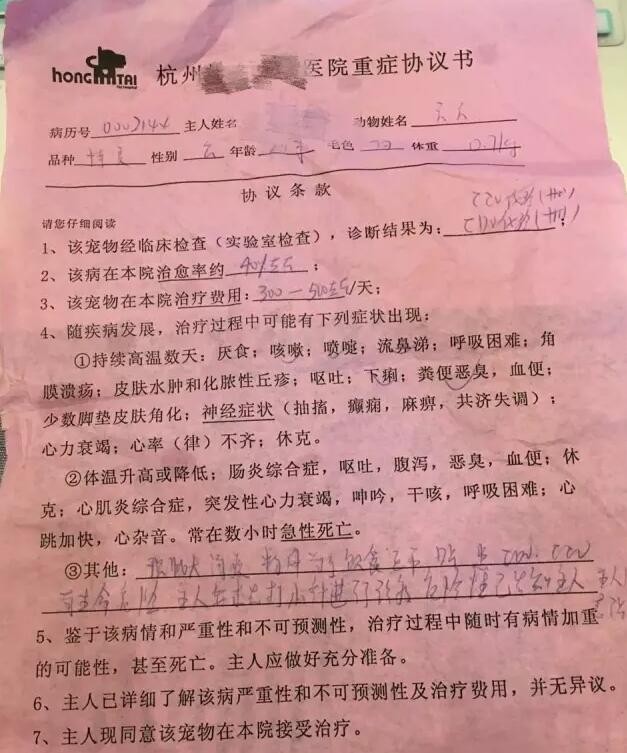 hong TAI 杭州 医院重症协议书
病历号 0002144 主人姓名 动物姓名 天天
品种 博美 性别 公 年龄 毛色 体重
协议条款
请您仔细阅读
1、该宠物经临床检查（实验室检查），诊断结果为：CCV CDV ；
2、该病在本院治愈率约 40%左右 ；
3、该宠物在本院治疗费用：300—500左右/天；
4、随疾病发展，治疗过程中可能有下列症状出现：
①持续高温数天：厌食；咳嗽；喷嚏；流鼻涕；呼吸困难；角
膜溃疡；皮肤水肿和化脓性丘疹；呕吐；下痢；粪便恶臭，血便；
少数脚垫皮肤角化；神经症状（抽搐，癫痫，麻痹，共济失调）；
心力衰竭；心率（律）不齐；休克。
②体温升高或降低；肠炎综合症，呕吐，腹泻，恶臭，血便；休
克；心肌炎综合症，突发性心力衰竭，呻吟，干咳，呼吸困难；心
跳加快，心杂音。常在数小时急性死亡。
③其他：
主人 打小针进行 主人
5、鉴于该病情和严重性和不可预测性，治疗过程中随时有病情加重
的可能性，甚至死亡。主人应做好充分准备。
6、主人已详细了解该病严重性和不可预测性及治疗费用，并无异议。
7、主人现同意该宠物在本院接受治疗。